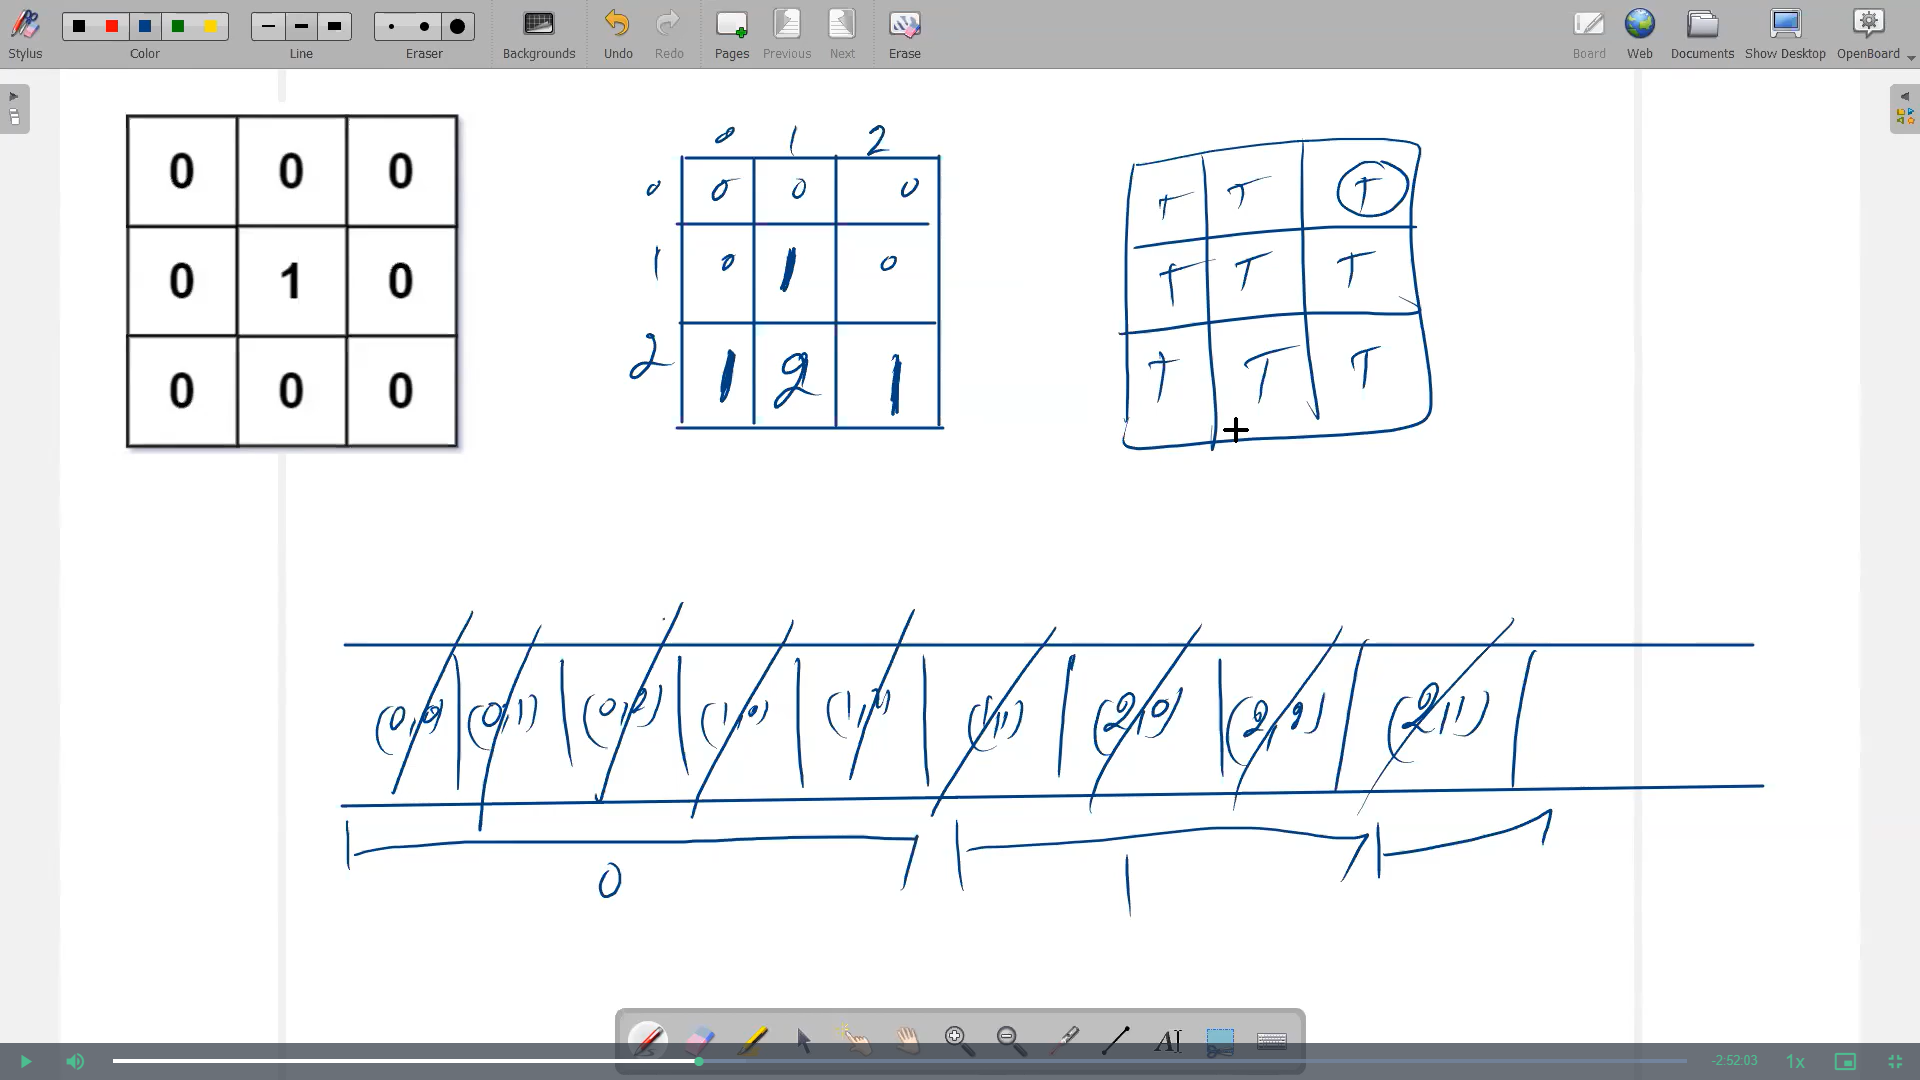 Stylus Color Line Eraser Backgrounds Undo Redo Pages Previous Next Erase Board Web Documents Show Desktop OpenBoard
0 0 0
0 1 0
0 0 0
0 1 2
0 0 0 0
1 0 1 0
2 1 2 1
T T T
T T T
T T T
(0,0) (0,1) (0,2) (1,0) (1,2) (1,1) (2,0) (2,2) (2,1)
0 1
-2:52:03 1x